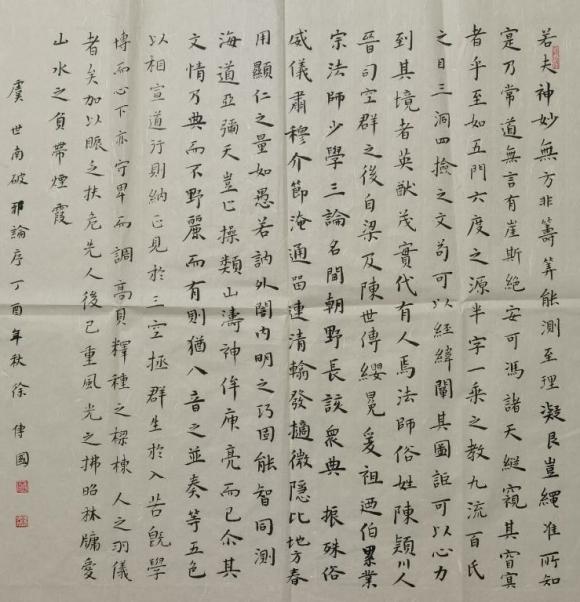 若夫神妙無方非籌筭能測至理凝艮豈繩准所知
寔乃常道無言有崖斯絕安可馮諸天縱窺其窅冥
者乎至如五門六度之源半字一乘之教九流百氏
之目三洞四撿之文苟可以經緯闡其圖詎可以心力
到其境者英猷茂實代有人焉法師俗姓陳潁川人
晉司空群之後自梁及陳世傳纓冕爰祖迺伯累業
宗法師少學三論名聞朝野長該衆典振殊俗
威儀肅穆介節淹通留連清翰發擿微隱比地方春
用顯仁之量如愚若訥外闇內明之巧固能智同測
海道亞彌天豈止操類山濤神侔庾亮而已尒其
文情乃典而不野麗而有則猶八音之並奏等五色
以相宣道行則納正見於三空拯群生於八苦既學
博而心下亦守卑而調高實釋種之樑棟人之羽儀
者矣加以賑乏扶危先人後己重風光之拂照林牖愛
山水之負帶煙霞
虞世南破邪論序丁酉年秋徐傳國